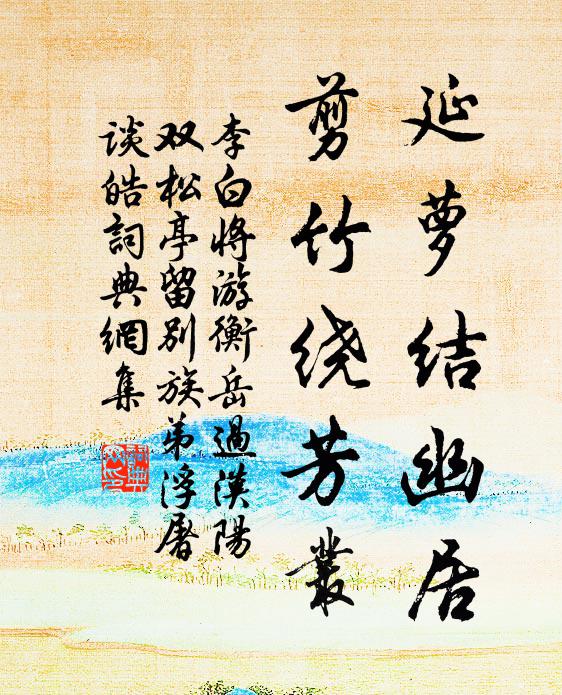 延萝结幽居
剪竹绕芳丛
李白将游衡岳過漢陽
双松亭留别族弟浮屠
谈皓詞典網集